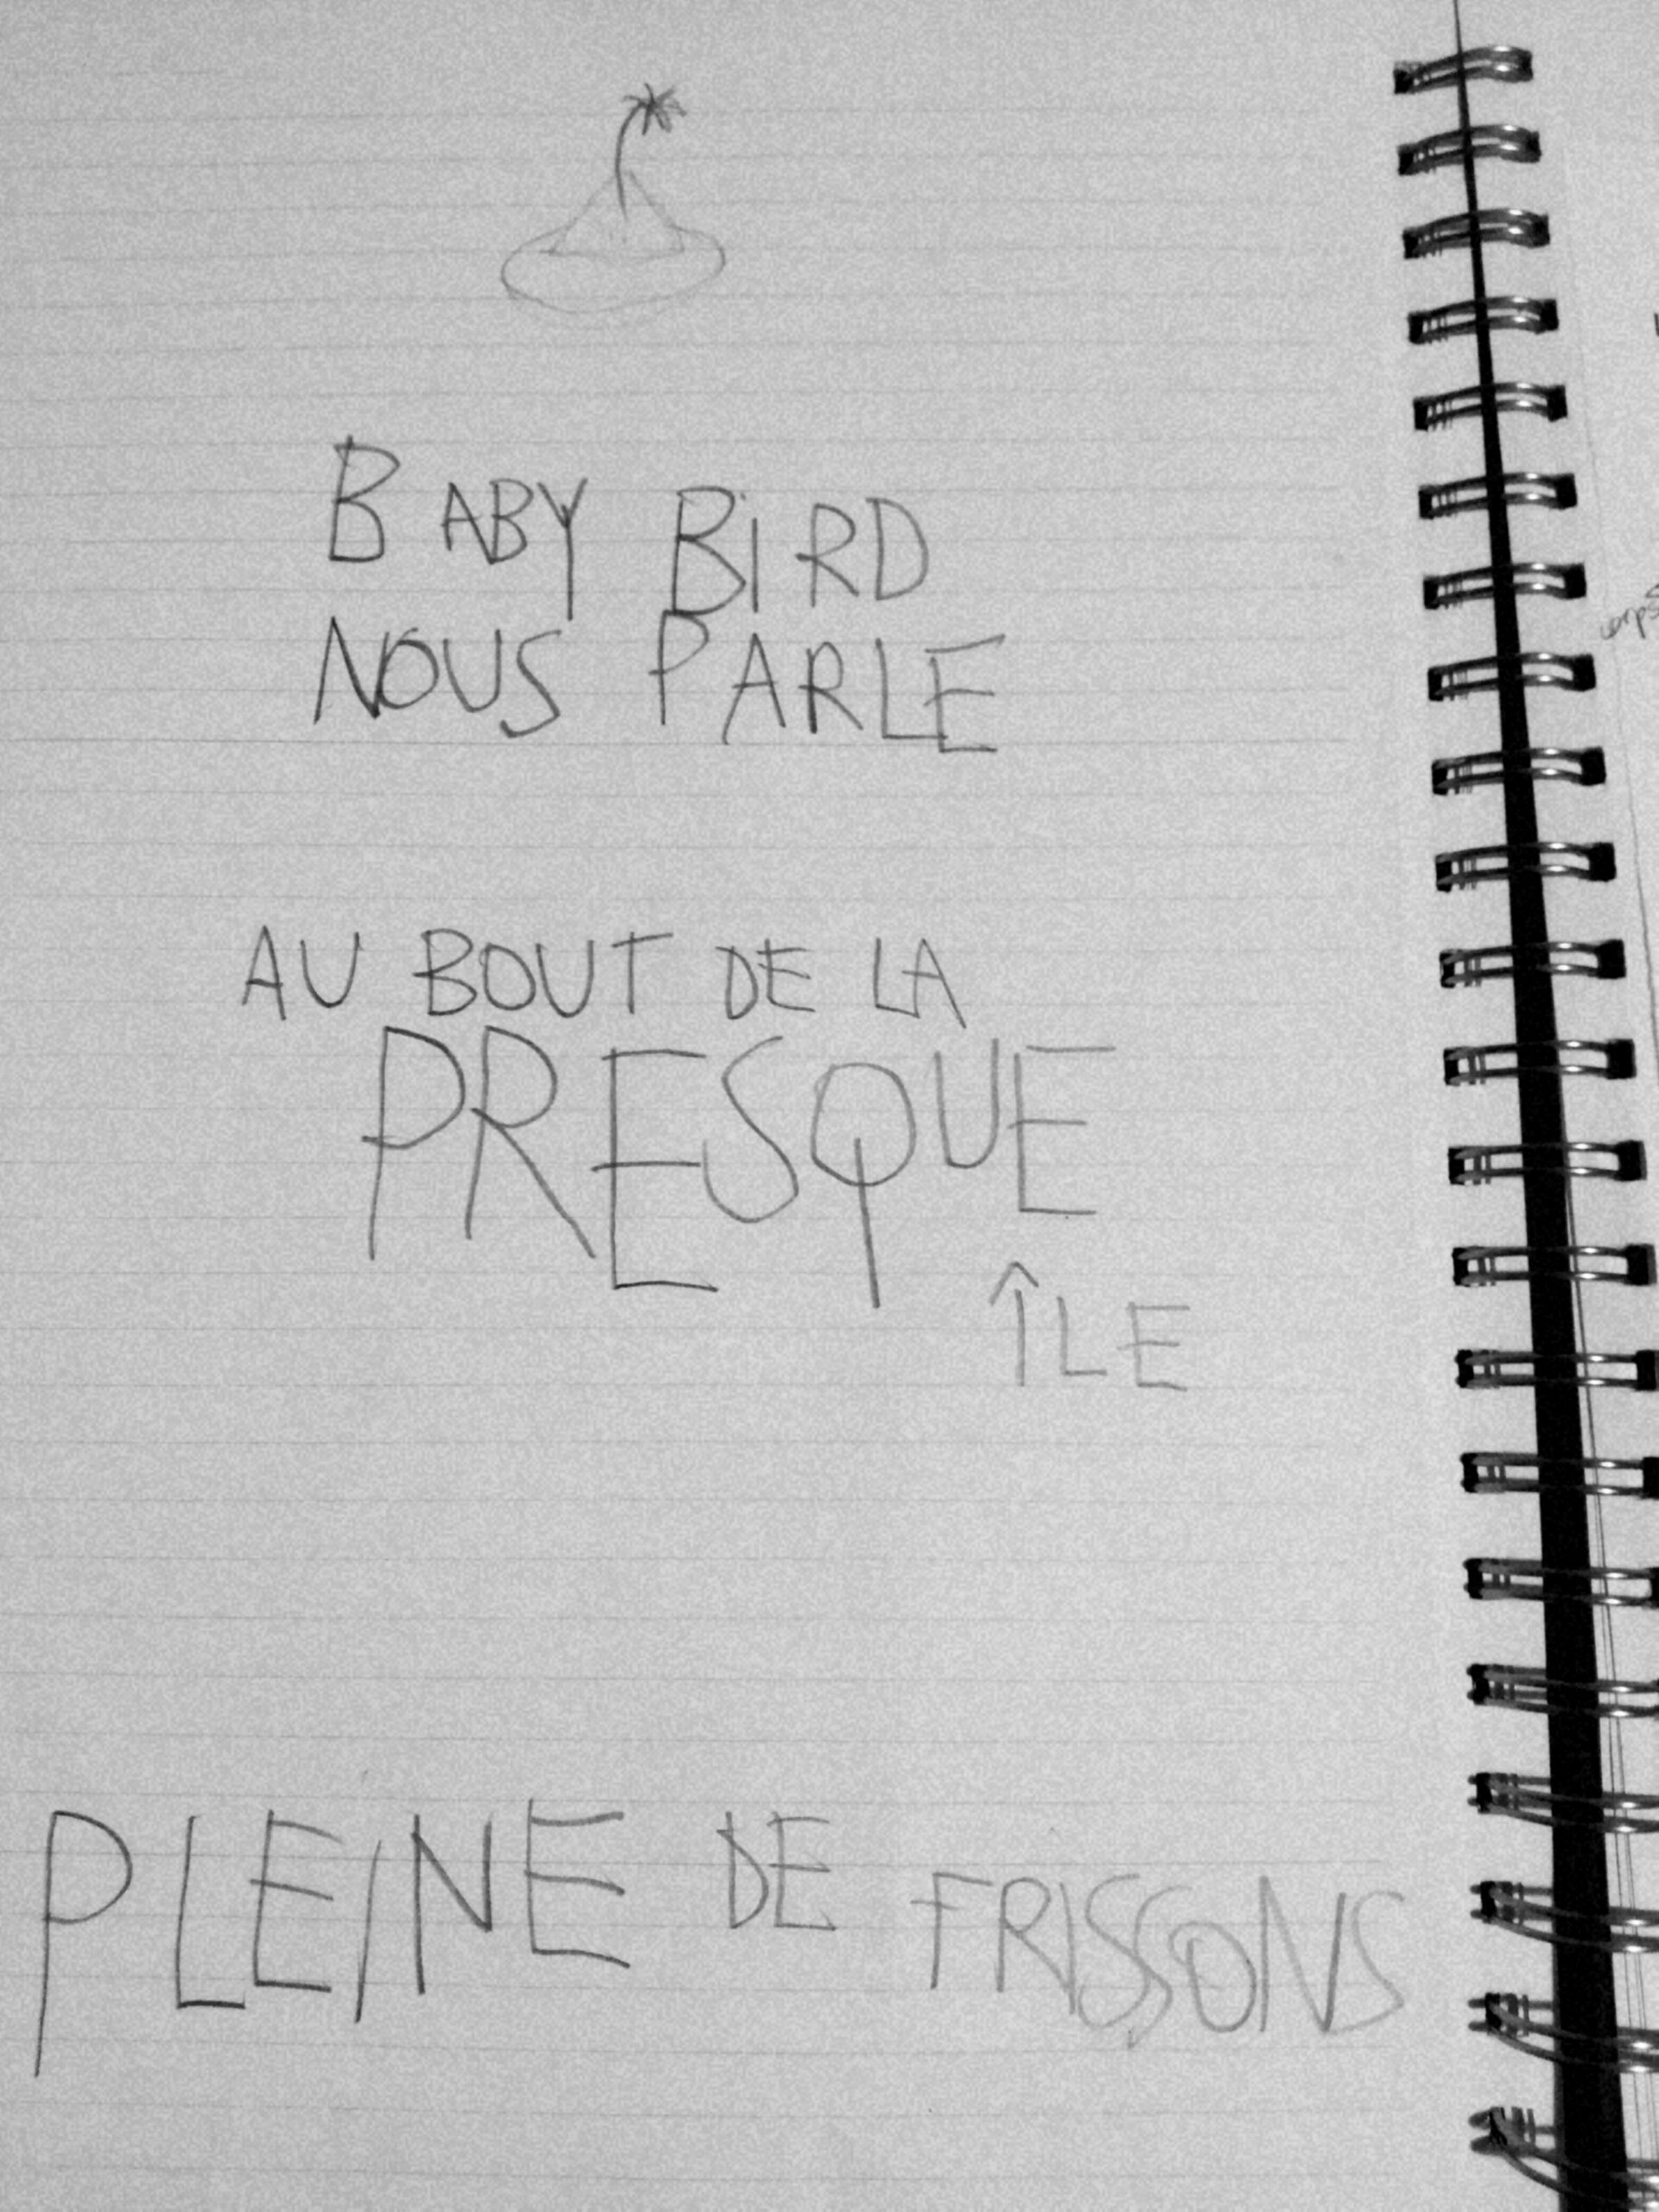 BABY BiRD
NOUS PARLE
AU BOUT DE LA
PRESQUE
ÎLE
PLEINE DE FRISSONS
corps